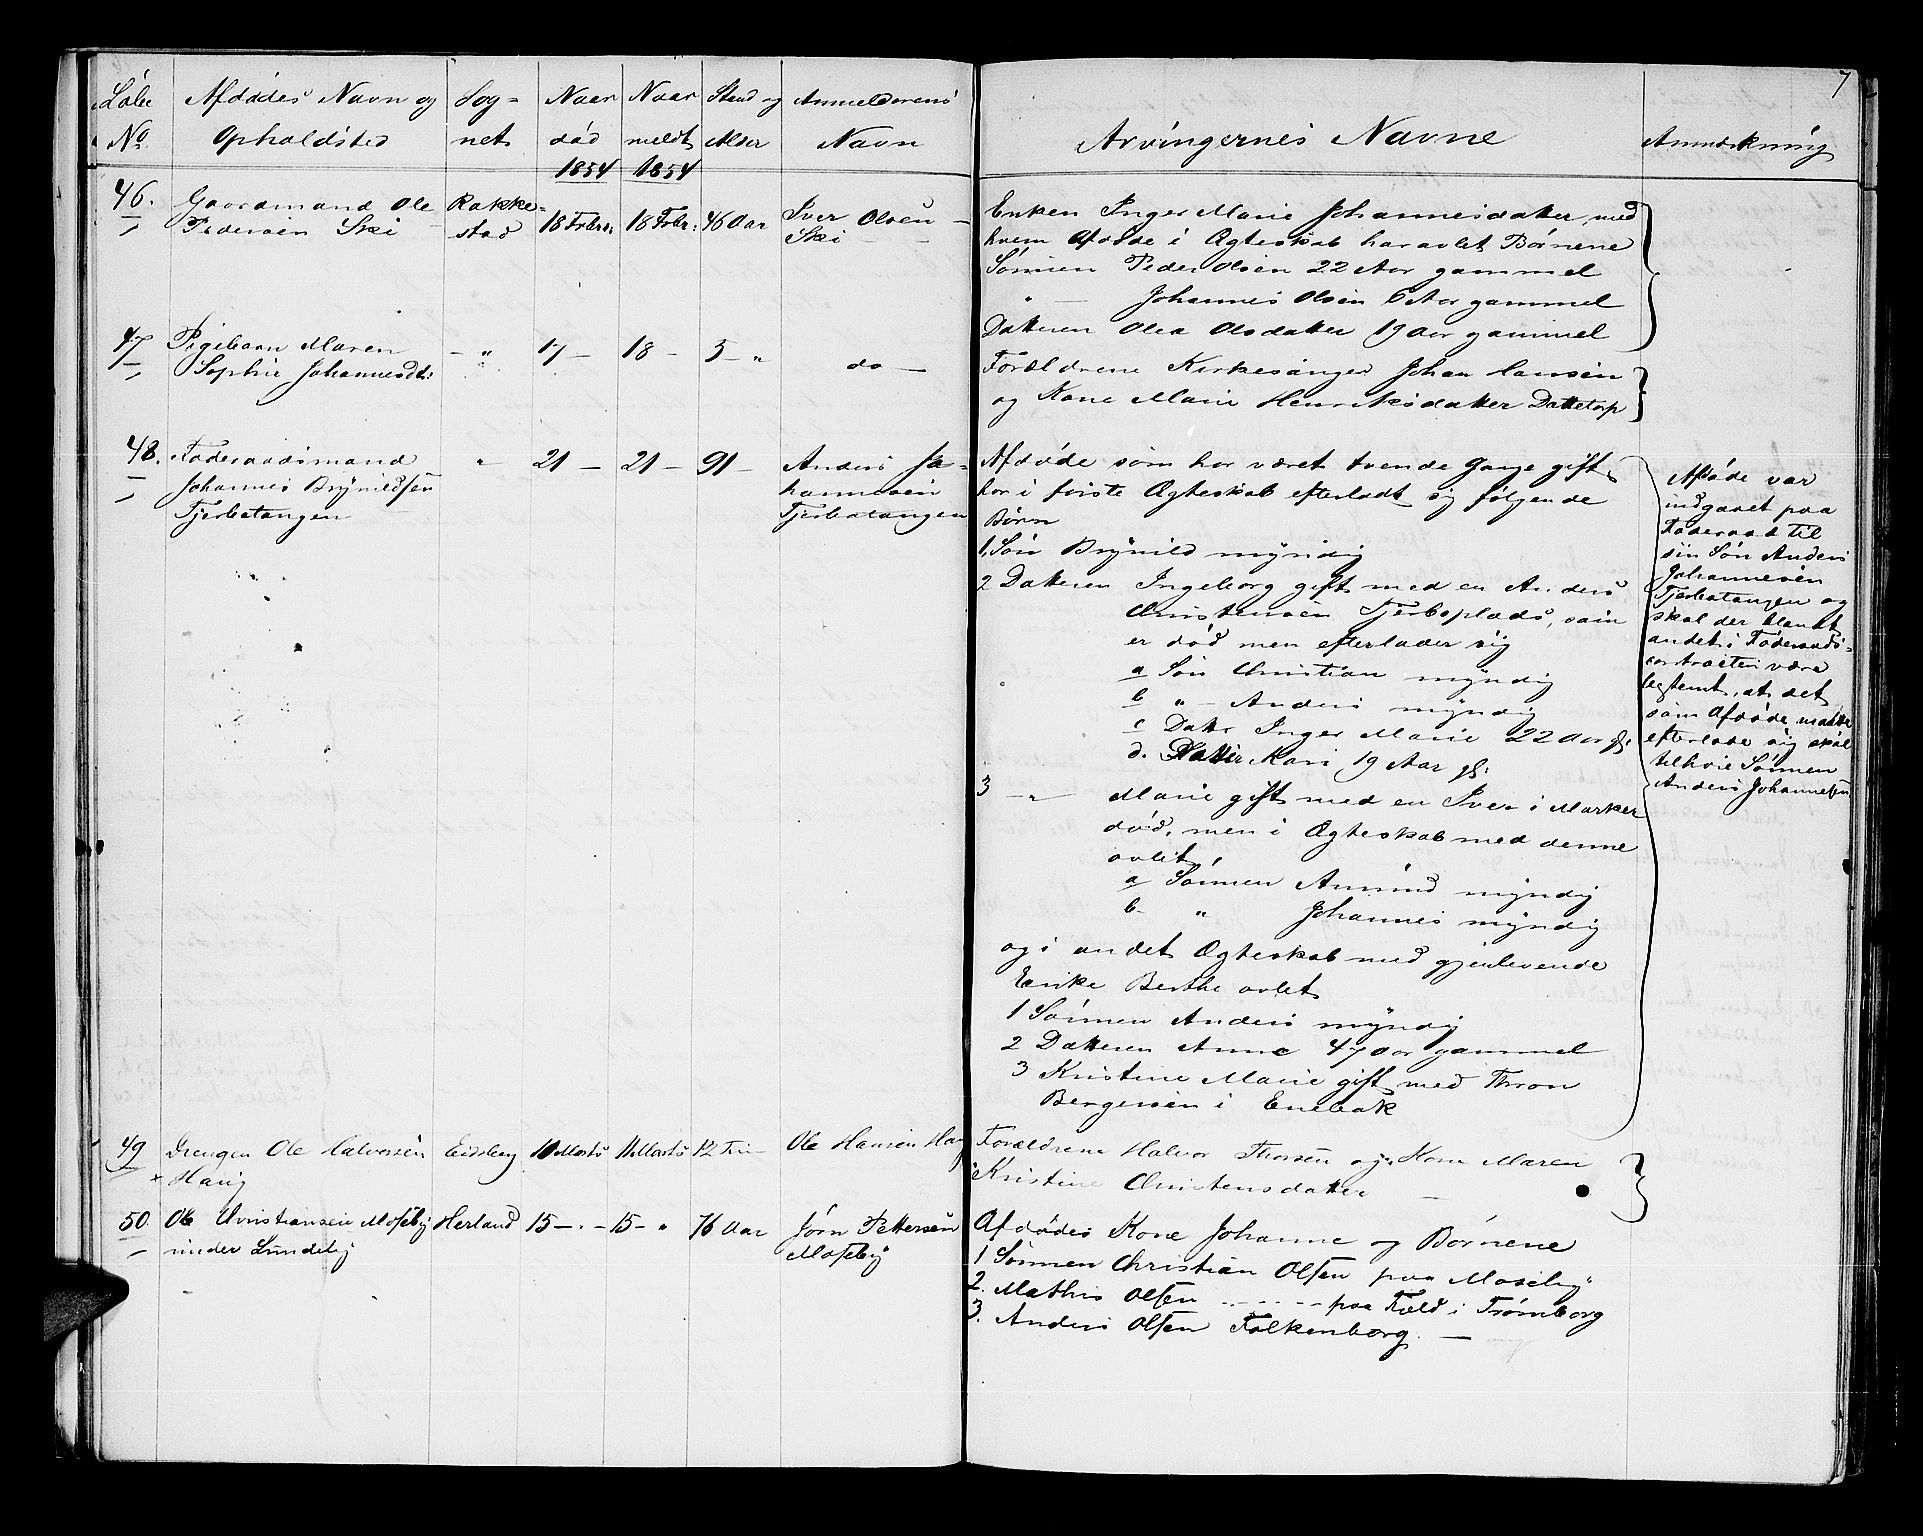 7
Løbe No
Afdødes Navn og Opholdsted
Sognet
Naar død 1854
Naar meldt 1854
Stand og Alder
Anmelderens Navn
Arvingernes Navne
Anmærkning
46.
Gaardmand Ole
Pedersen Ski
Rakke=
stad
18 Febr:
18 Febr:
46 Aar
Iver Olsen
Ski
Enken Inger Marie Johannesdatter, med
hvem Afdøde i Ægteskab har avlet Børnene
Sønnen Peder Olsen 22 Aar gammel
" — Johannes Olsen 6 Aar gammel
Datteren Olea Olsdatter 19 Aar gammel
47
Pigebarn Maren
Sophie Johannesdtr:
— "
17 —
18 —
5 — "
do —
Forældrene Kirkesanger Johan Hansen
og Kone Marie Henriksdatter Dattetorp
48.
Føderaadsmand
Johannes Brynildsen
Tjerbatangen
"
21 —
21 —
91 —
Anders Jo=
hannesen
Tjerbatangen
Afdøde som har været tvende Gange gift
har i første Ægteskab efterladt sig følgende
Børn
1. Søn Brynild myndig
2 Datteren Ingeborg gift med en Anders
Christensen Tjerboplads, som
er død men efterlader sig
a Søn Christian myndig
b " — Anders myndig
c Datr Inger Marie 22 Aar gl:
d. Datter Kari 19 Aar gl:
3 — " Marie gift med en Iver i Marker
død, men i Ægteskab med denne
avlet
a Sønnen Amund myndig
b " Johannes myndig
og i andet Ægteskab med gjenlevende
Enke Berthe avlet
1 Sønnen Anders myndig
2 Datteren Anne 47 Aar gammel
3 Kristine Marie gift med Thron
Bergersen i Enebak
Afdøde var
indgaaet paa
Føderaad til
sin Søn Anders
Johannesen
Tjerbatangen og
skal der blandt
andet i Føderaads=
contracten være
bestemt, at det
som Afdøde maatte
efterlade sig skal
tilhøre Sønnen
Anders Johannesen
49
Drengen Ole Halvorsen
Haug
Eidsberg
10 Marts
11 Marts
12 Tim—
Ole Hansen Haug
Forældrene Halvor Thorsen og Kone Maren
Kristine Christensdatter —
50.
Ole Christiansen Moseby
under Lundeby
Herland
15 — " —
15 — "
76 Aar
Jørn Pettersen
Moseby
Afdødes Kone Johanne og Børnene
1 Sønnen Christian Olsen paa Moseby
2. Mathis Olsen ------ paa Fæld i Trømborg
3. Anders Olsen Falkenborg. —